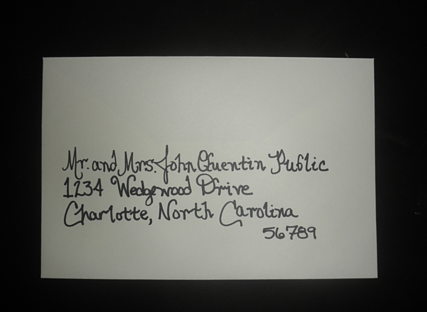 Mr. and Mrs. John Quentin Public
1234 Wedgewood Drive
Charlotte, North Carolina
56789